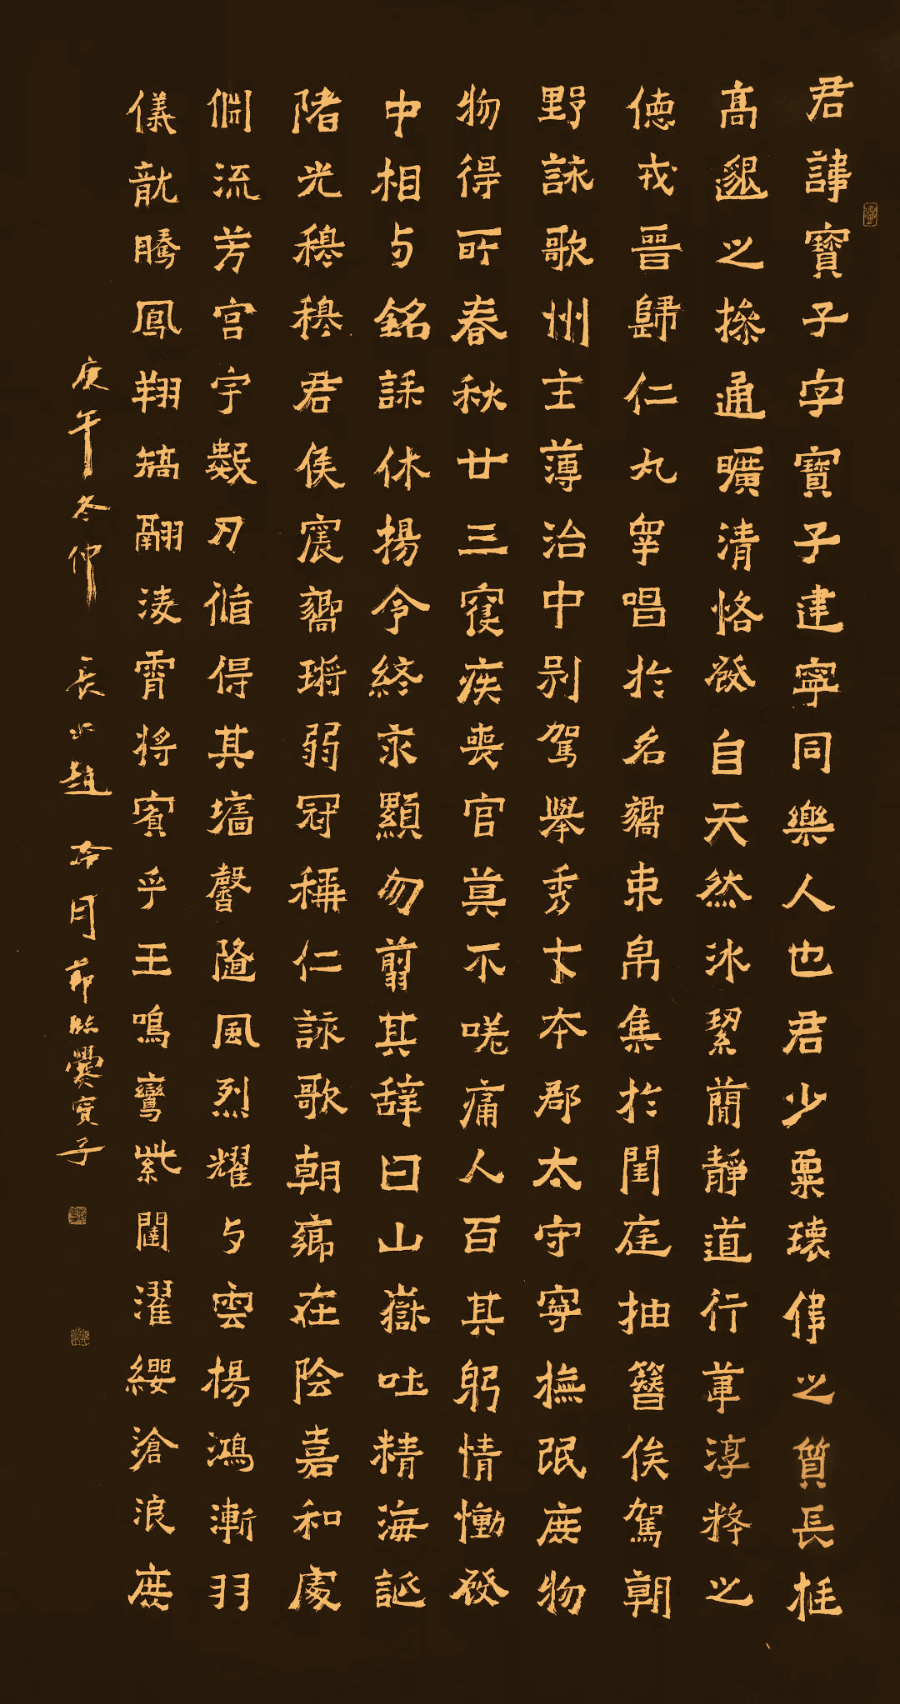 君諱寶子字寶子建寧同樂人也君少稟瓌偉之質長挺
高邈之操通曠清恪發自天然冰絜蕳靜道行葦淳粹之
德戎晉歸仁九皋唱於名嚮束帛集於閨庭抽簪俟駕朝
野詠歌州主薄治中別駕舉秀才本郡太守寧撫氓庶物
物得所春秋廿三寢疾喪官莫不嗟痛人百其躬情慟發
中相与銘誄休揚令終永顯勿翦其辞曰山嶽吐精海誕
陼光穆穆君侯震嚮鏘弱冠稱仁詠歌朝鄉在陰嘉和處
淵流芳宮宇數刃循得其墻馨隨風烈耀与雲揚鴻漸羽
儀龍騰鳳翔矯翮凌霄將賓乎王鳴鸞紫闥濯纓滄浪庶
庚午冬仲 長山趙冷月節臨爨寶子